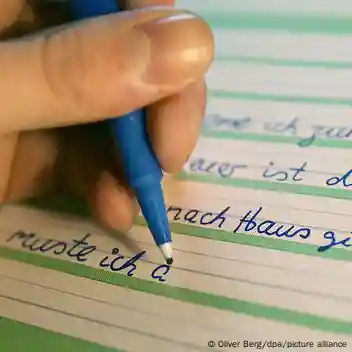 ich zum
ist d
nach Haus gi
muste ich a
© Oliver Berg/dpa/picture alliance